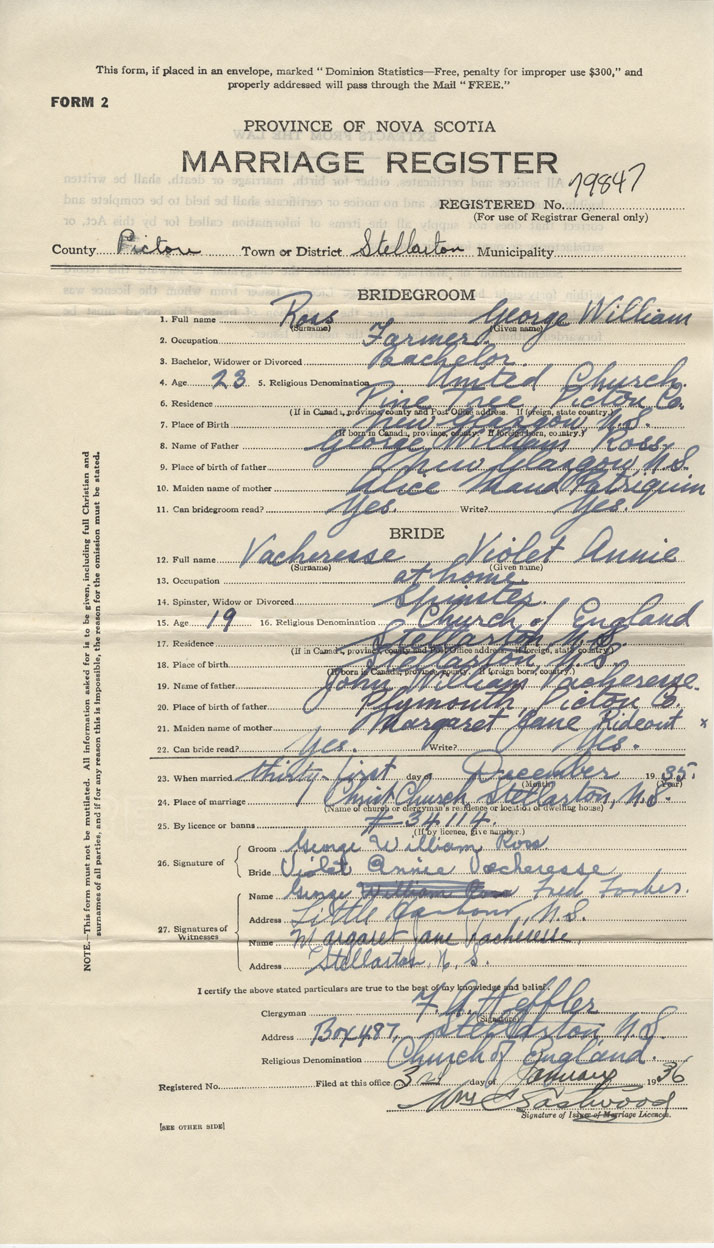 This form, if placed in an envelope, marked "Dominion Statistics—Free, penalty for improper use $300," and
properly addressed will pass through the Mail "FREE."
FORM 2
PROVINCE OF NOVA SCOTIA
MARRIAGE REGISTER
79847
REGISTERED No.
(For use of Registrar General only)
County Pictou Town or District Stellarton Municipality
BRIDEGROOM
1. Full name Ross George William
(Surname) (Given name)
2. Occupation Farmer.
3. Bachelor, Widower or Divorced Bachelor.
4. Age 23 5. Religious Denomination United Church.
6. Residence Pine Tree, Pictou Co.
(If in Canada, province, county and Post Office address. If foreign, state country.)
7. Place of Birth New Glasgow N.S.
(If born in Canada, province, county. If foreign born, country.)
8. Name of Father George William Ross
9. Place of birth of father New Glasgow, N.S.
10. Maiden name of mother Alice Maud Patriquin
11. Can bridegroom read? Yes. Write? Yes.
BRIDE
12. Full name Vacheresse Violet Annie
(Surname) (Given name)
13. Occupation at home
14. Spinster, Widow or Divorced Spinster.
15. Age 19 16. Religious Denomination Church of England
17. Residence Stellarton N.S.
(If in Canada, province, county and Post Office address. If foreign, state country.)
18. Place of birth Stellarton N.S.
(If born in Canada, province, county. If foreign born, country.)
19. Name of father John William Vacheresse.
20. Place of birth of father Plymouth, Pictou Co.
21. Maiden name of mother Margaret Jane Rideout x
22. Can bride read? Yes. Write? Yes.
23. When married thirty-first day of December 1935.
(Month) (Year)
24. Place of marriage Christ Church, Stellarton, N.S.
(Name of church or clergyman's residence or location of dwelling house)
25. By licence or banns # 34114.
(If by licence, give number.)
26. Signature of
Groom George William Ross
Bride Violet Annie Vacheresse
27. Signatures of Witnesses
Name George William Ross Fred Forbes.
Address Little Harbour, N.S.
Name Margaret Jane Vacheresse,
Address Stellarton, N. S.
I certify the above stated particulars are true to the best of my knowledge and belief.
Clergyman Heffler
(Signature)
Address Box 487, Stellarton N.S.
Religious Denomination Church of England.
Registered No. Filed at this office 3rd day of January 1936
Wm Eastwood
Signature of Issuer of Marriage Licences.
[SEE OTHER SIDE]
NOTE.—This form must not be mutilated. All information asked for is to be given, including full Christian and
surnames of all parties, and if for any reason this is impossible, the reason for the omission must be stated.